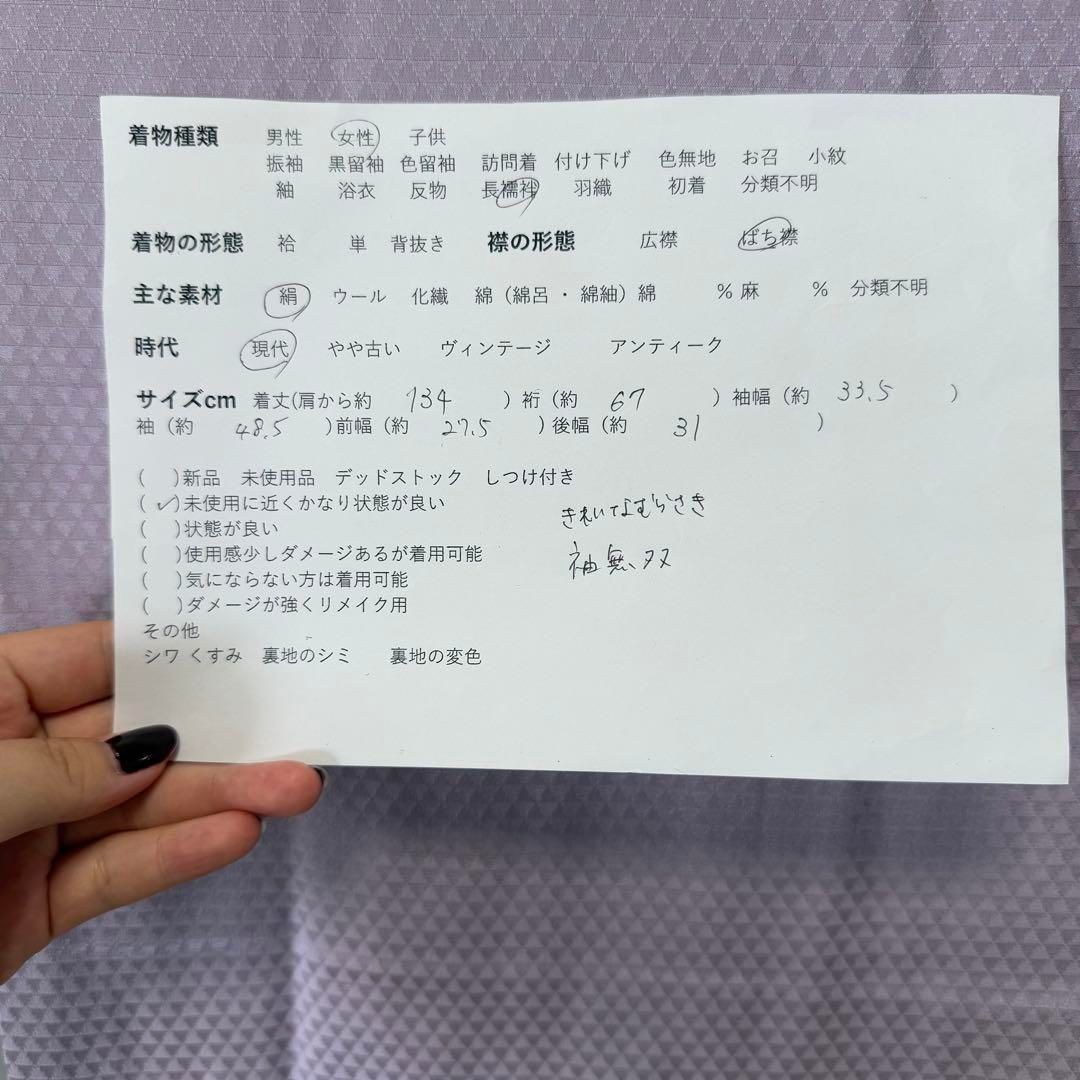 着物種類 男性 女性 子供
振袖 黒留袖 色留袖 訪問着 付け下げ 色無地 お召 小紋
紬 浴衣 反物 長襦袢 羽織 初着 分類不明
着物の形態 袷 単 背抜き 襟の形態 広襟 ばち襟
主な素材 絹 ウール 化繊 綿（綿呂・綿紬）綿 % 麻 % 分類不明
時代 現代 やや古い ヴィンテージ アンティーク
サイズcm 着丈(肩から約 134 ) 裄（約 67 ）袖幅（約 33.5 ）
袖（約 48.5 )前幅（約 27.5 ）後幅（約 31 ）
( )新品 未使用品 デッドストック しつけ付き
(✓)未使用に近くかなり状態が良い
( )状態が良い
( )使用感少しダメージあるが着用可能
( )気にならない方は着用可能
( )ダメージが強くリメイク用
その他
シワ くすみ 裏地のシミ 裏地の変色
きれいなむらさき
袖無双